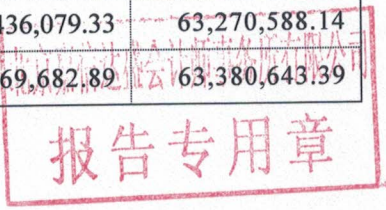 436,079.33 63,270,588.14
69,682.89 63,380,643.39
报告专用章